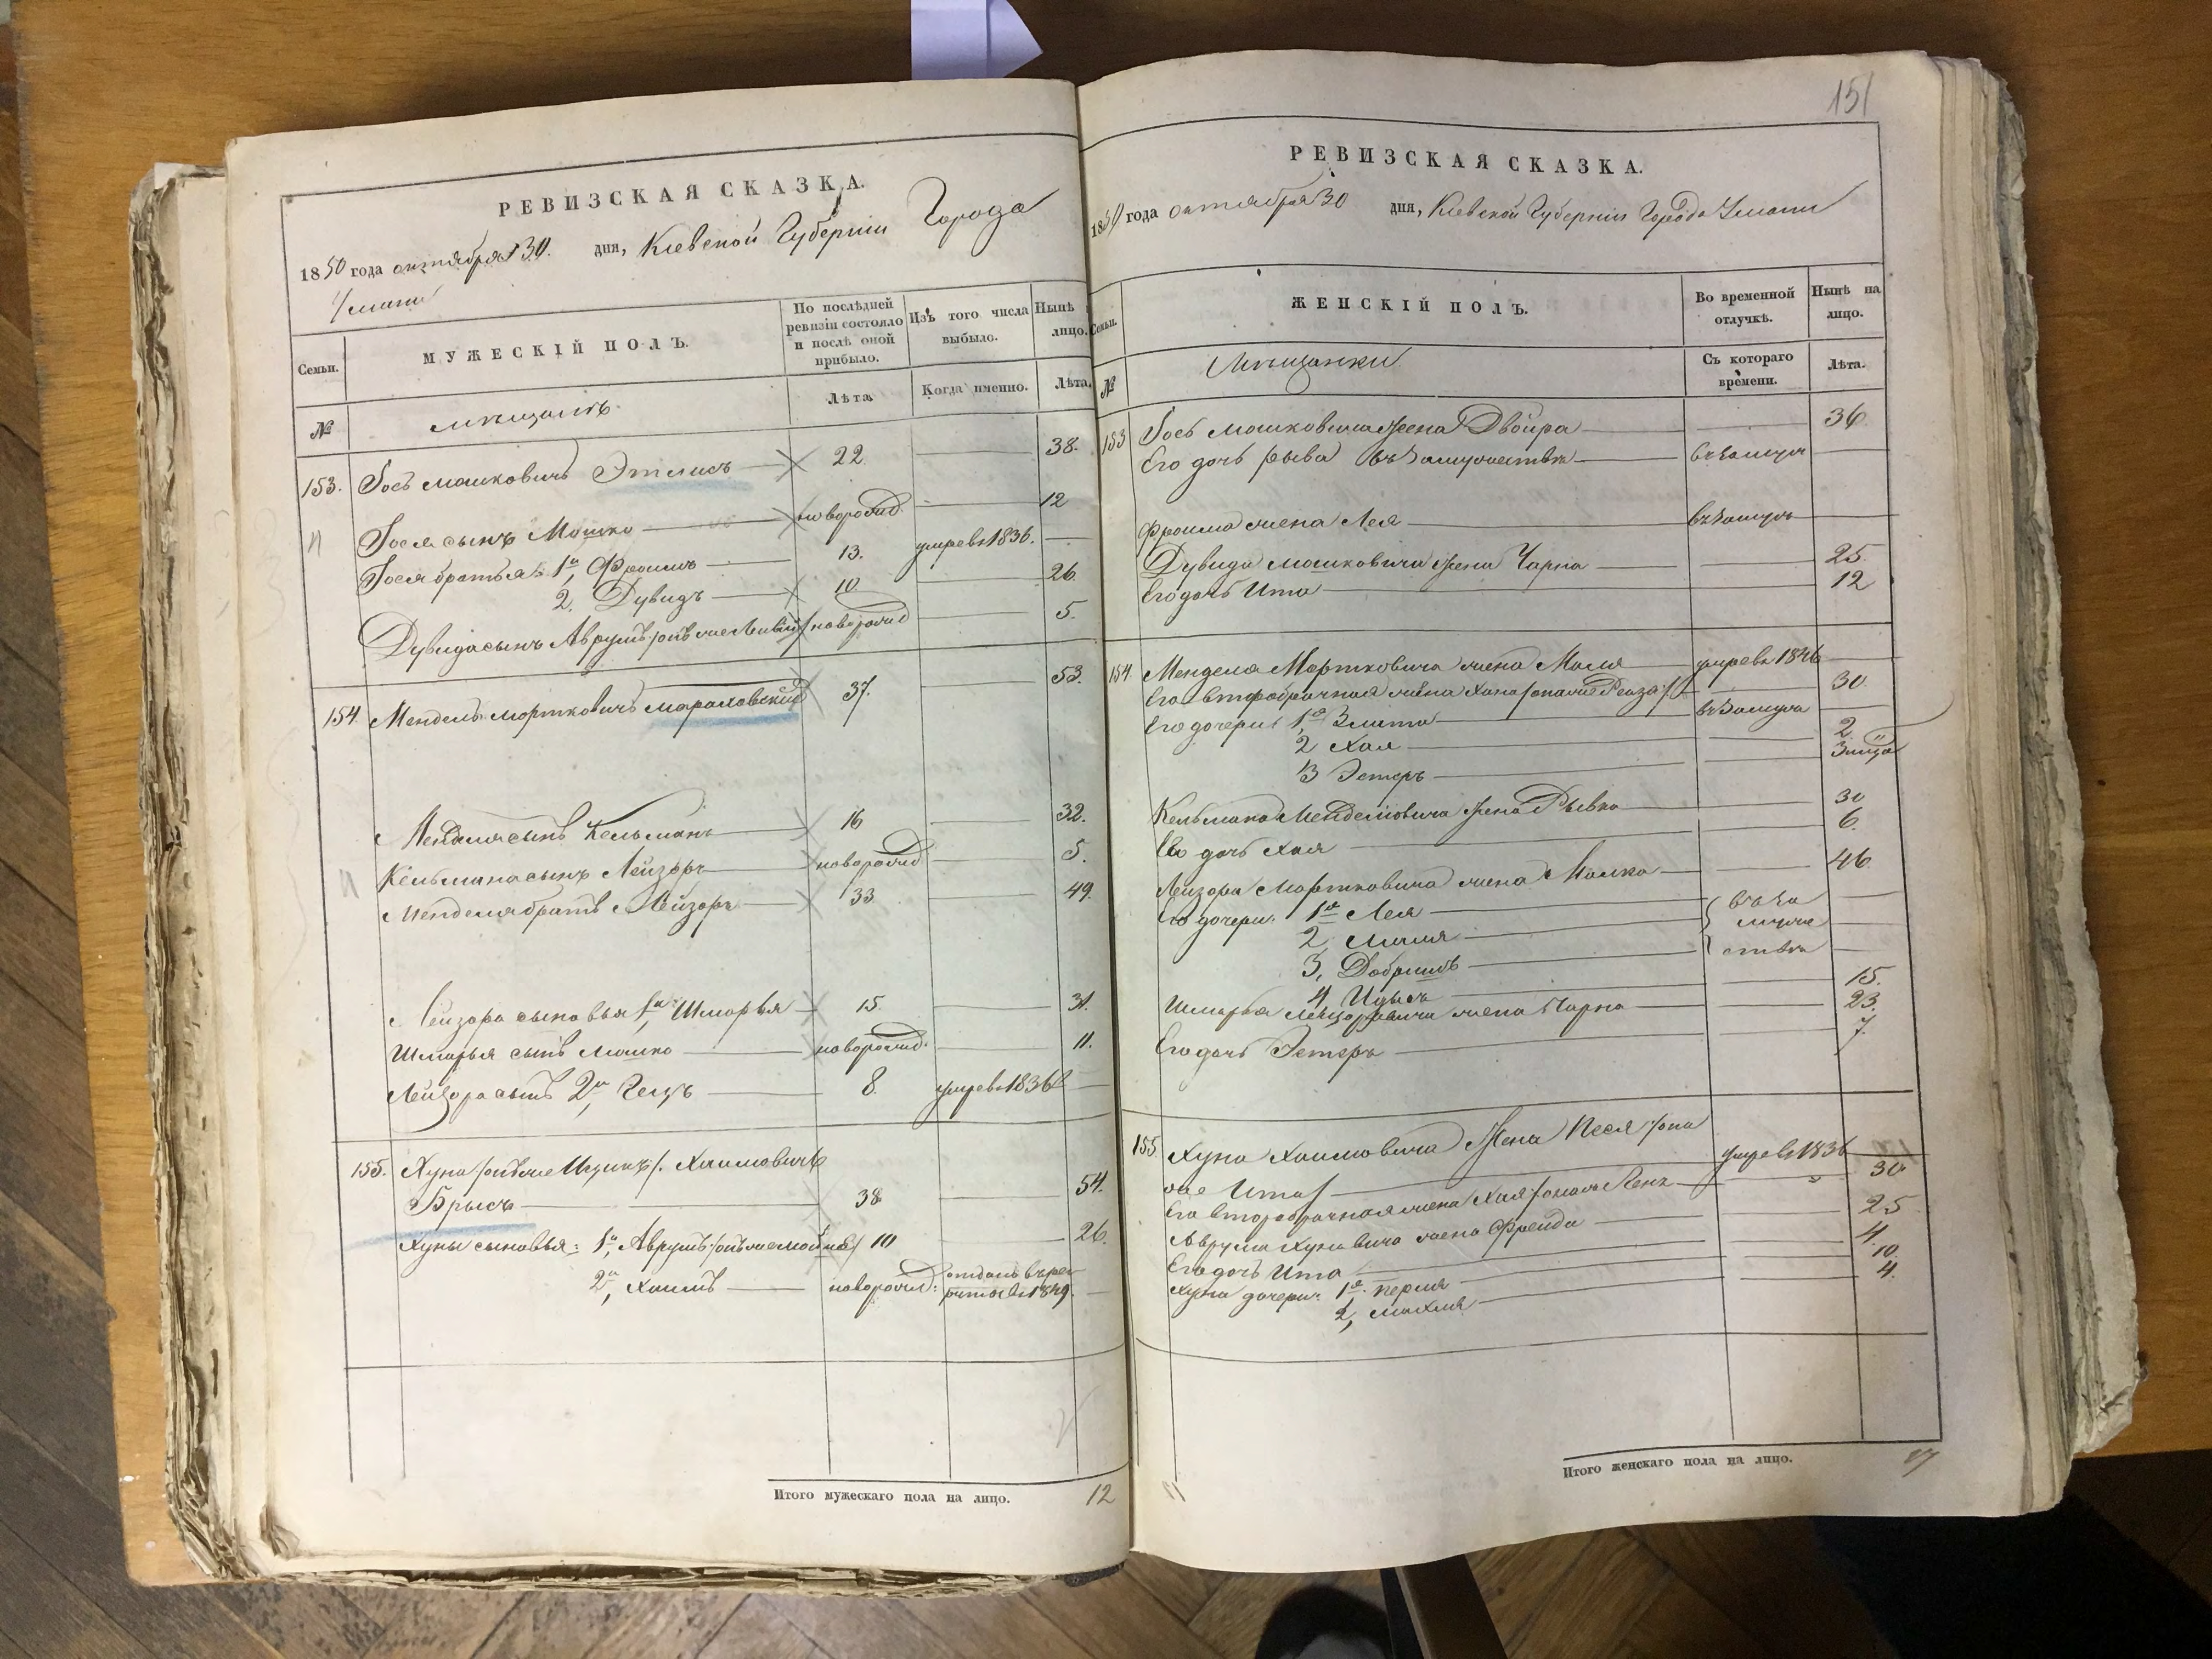 РЕВИЗСКАЯ СКАЗКА.
1850 года октября 30. дня, Кіевской Губерніи Города
Умани
Семьи.
МУЖЕСКІЙ ПОЛЪ.
По послѣдней ревизіи состояло и послѣ оной прибыло.
Изъ того числа выбыло.
Нынѣ
лицо.
№
мѣщанъ
Лѣта
Когда именно.
Лѣта.
153. Іось Мошковичъ Этлисъ 22 38.
Іося сынъ Мошко новорожд. 12
Іося братья: 1й, Фроимъ 13. умре въ 1836.
2, Дувидъ 10. 26.
Дувида сынъ Аврумъ новорожд 5.
154. Мендель Мортковичъ Мараховский 37. 53.
Менделя сынъ Кельманъ 16 32.
Кельмана сынъ Лейзоръ новорожд 5.
Менделя братъ Лейзоръ 33 49.
Лейзора сыновья 1й, Шмарья 15. 31.
Шмарья сынъ Мошко новорожд. 11.
Лейзора сынъ 2й, 8. умре въ 1836
155. Хуна Хаимовичъ
Брысъ 38 54.
Хуны сыновья: 1й, Аврумъ 10 26.
2й, Хаимъ новорожд: отданъ въ рек
руты въ 1849.
Итого мужескаго пола на лицо. 12
151
РЕВИЗСКАЯ СКАЗКА.
1850 года октября 30 дня, Кіевской Губерніи Города Умани
Семьи.
ЖЕНСКІЙ ПОЛЪ.
Во временной отлучкѣ.
Нынѣ на лицо.
№
Мѣщанки
Съ котораго времени.
Лѣта.
153 Іося Мошковича жена Двойра 36
Его дочь Рыва въ замужествѣ
Фроима жена Лея въ замуж
Дувида Мошковича жена Чарна 25.
Его дочь Ита 12
154. Менделя Мортковича жена Маля умре въ 1846
Его второбрачная жена Хана 30.
Его дочери: 1я, Злата въ замуж
2 Хая 2
3 Эстеръ
Кельмана Менделіовича жена Рывка 30
Его дочь Хая 6.
Лейзора Мортковича жена Малка 46
Его дочери: 1я Лея въ за
2, муже
3, Добришъ ствѣ
4, 15.
Шмарья Лейзоровича жена Чарна 23.
Его дочь Эстеръ 7.
155 Хуна Хаимовича жена Песя /она
же Ита/ умре въ 1836
Его второбрачная жена Хая 30
Аврума Хуновича жена Фрейда 25
Его дочь Ита 4.
Хуна дочери: 1я. Перля 10.
2, 4.
Итого женскаго пола на лицо.